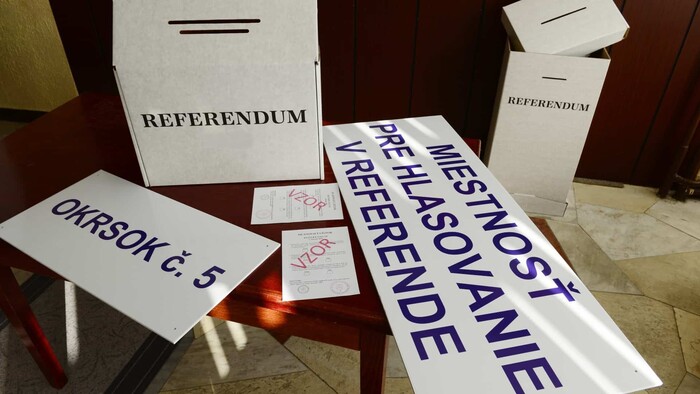 REFERENDUM
REFERENDUM
OKRSOK č. 5
VZOR
VZOR
MIESTNOSŤ
PRE HLASOVANIE
V REFERENDE